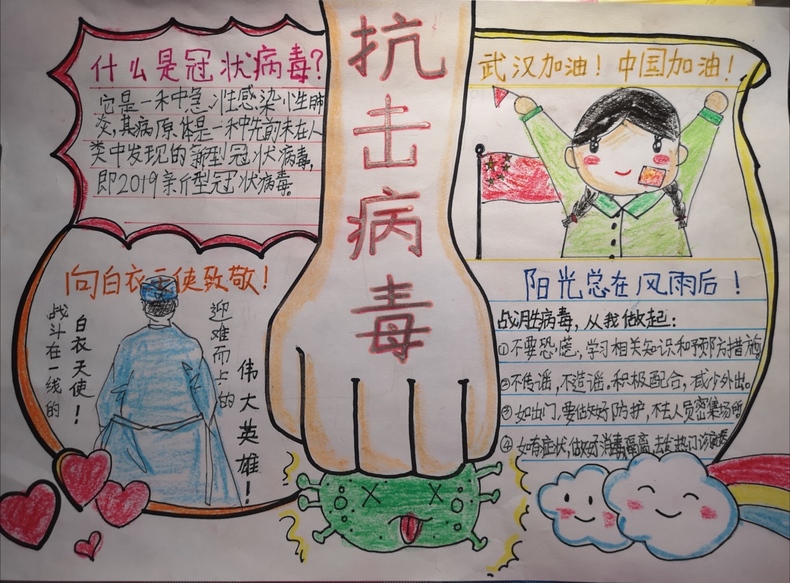 抗击病毒
什么是冠状病毒?
它是一种急性感染性肺
炎,其病原体是一种先前未在人
类中发现的新型冠状病毒,
即2019新型冠状病毒。
武汉加油!中国加油!
向白衣天使致敬!
战斗在一线的
白衣天使!
迎难而上的
伟大英雄!
阳光总在风雨后!
战胜病毒,从我做起:
①不要恐慌,学习相关知识和预防措施
②不传谣,不造谣,积极配合,减少外出。
③如出门,要做好防护,不去人员密集场所
④如有症状,做好消毒隔离,去发热门诊